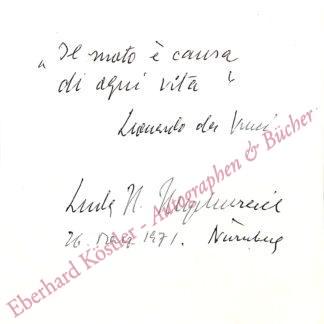 "Il moto è causa
di ogni vita"
Leonardo da Vinci
26. 1971. Nürnberg
Eberhard Köstler - Autographen & Bücher